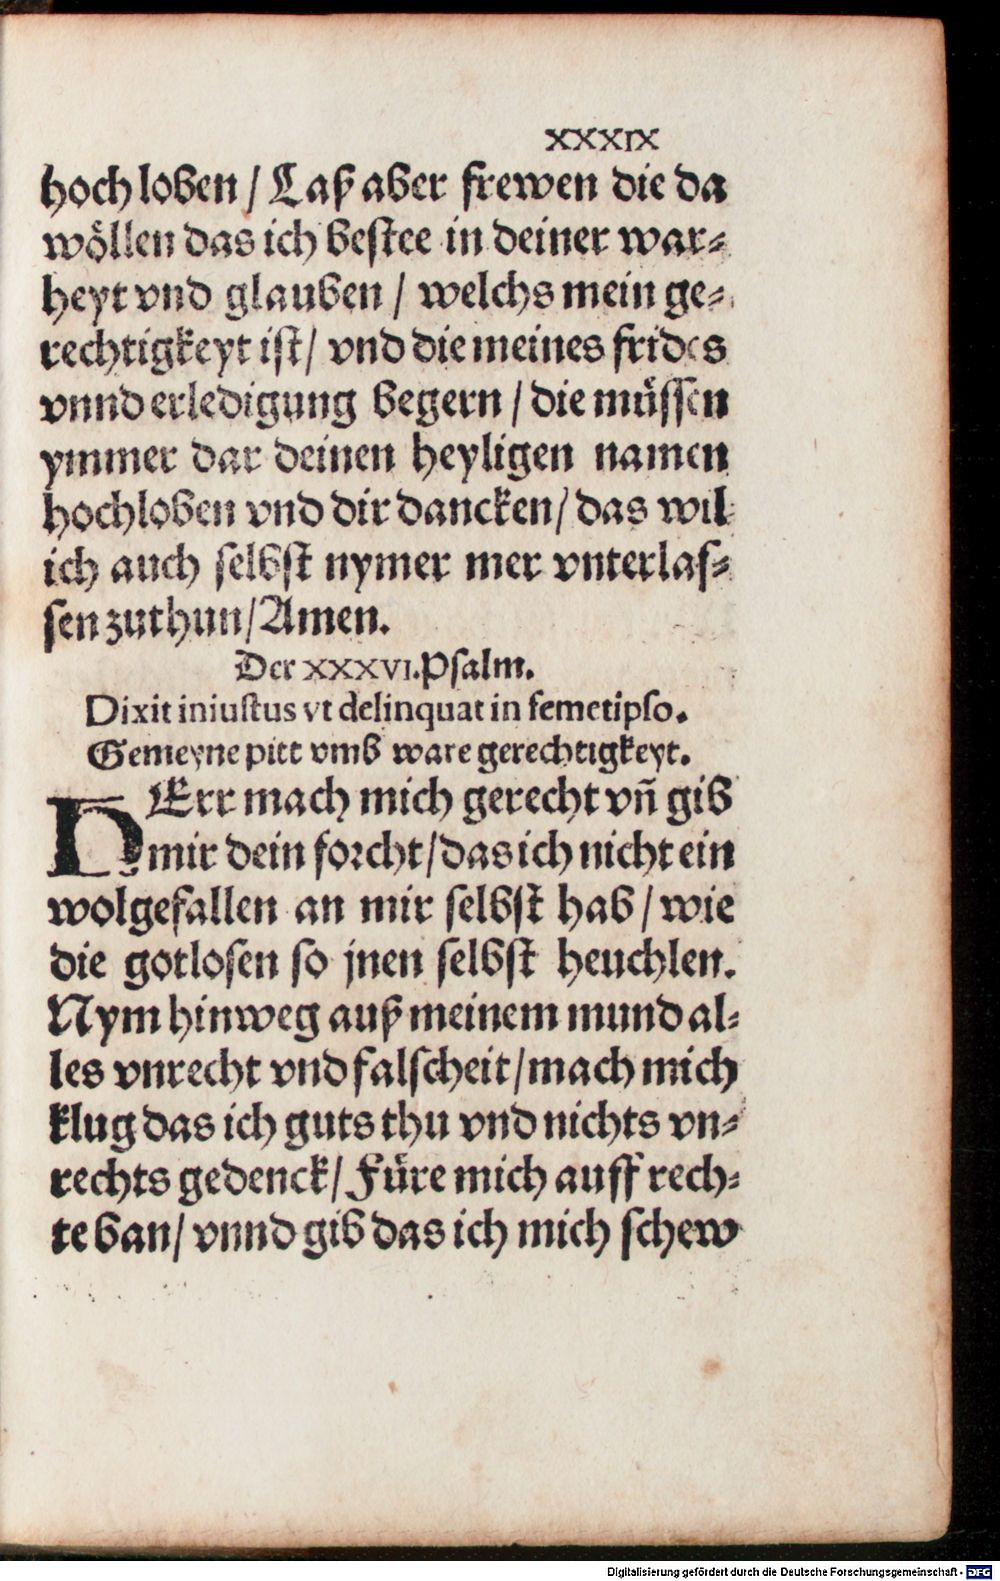 XXXIX
hoch loben / Laß aber frewen die da
wöllen das ich bestee in deiner war⸗
heyt vnd glauben / welchs mein ge⸗
rechtigkeyt ist / vnd die meines frides
vnnd erledigung begern / die müssen
ymmer dar deinen heyligen namen
hochloben vnd dir dancken / das wil
ich auch selbst nymer mer vnterlas⸗
sen zuthun / Amen.
Der XXXVI. Psalm.
Dixit iniustus vt delinquat in semetipso.
Gemeyne pitt vmb ware gerechtigkeyt.
HErr mach mich gerecht vñ gib
mir dein forcht / das ich nicht ein
wolgefallen an mir selbst hab / wie
die gotlosen so jnen selbst heuchlen.
Nym hinweg auß meinem mund al⸗
les vnrecht vnd falscheit / mach mich
klug das ich guts thu vnd nichts vn⸗
rechts gedenck / Füre mich auff rech⸗
te ban / vnnd gib das ich mich schew
Digitalisierung gefördert durch die Deutsche Forschungsgemeinschaft - DFG